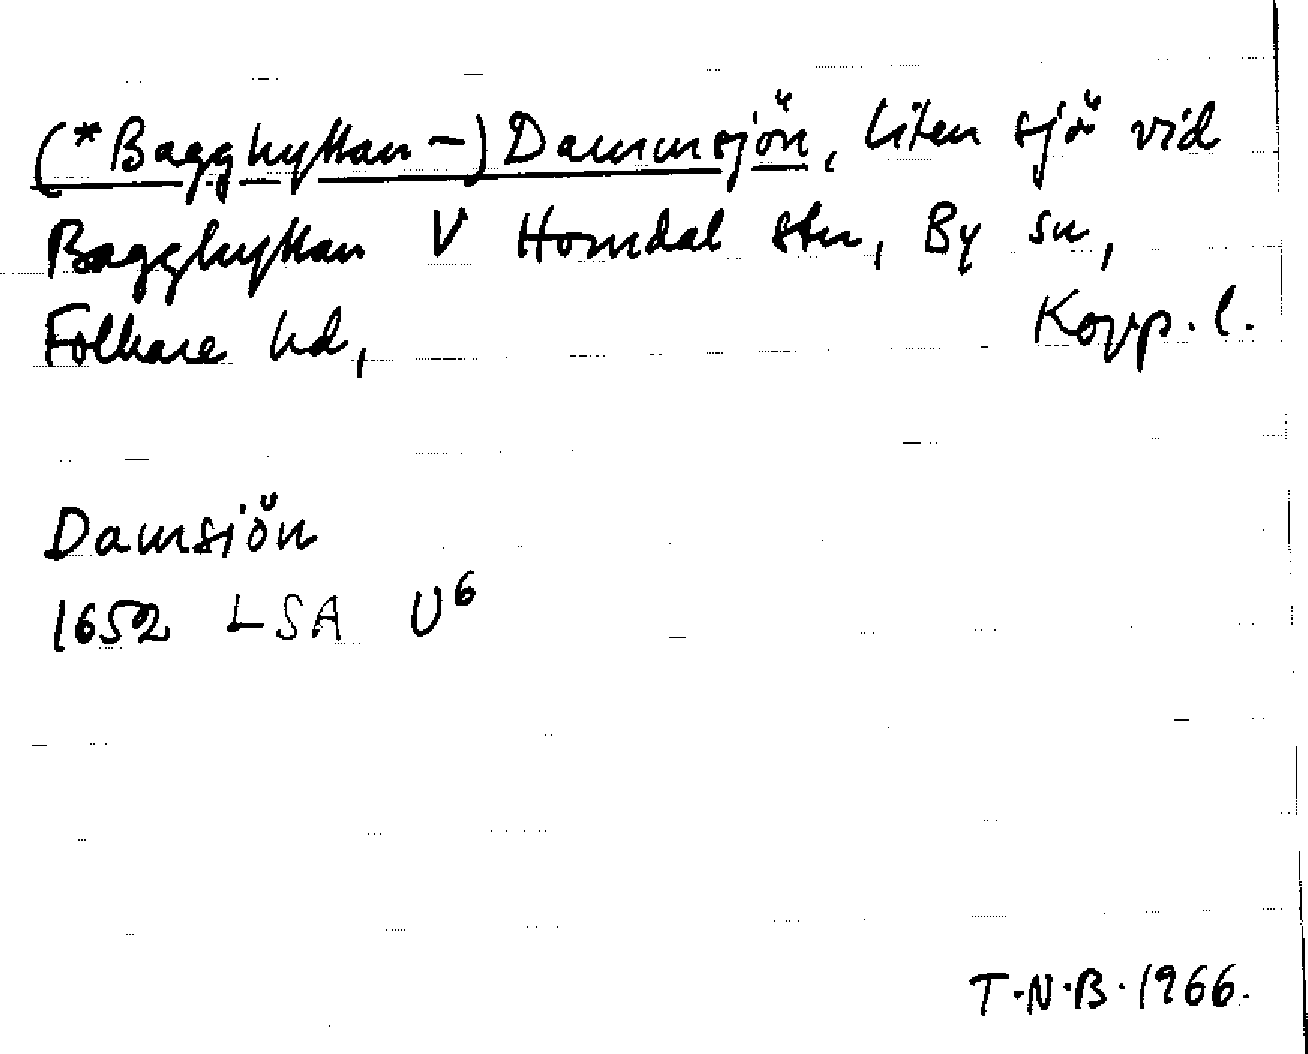 (*Bagghyttan-) Dammsjön, liten sjö vid
Bagghyttan V Horndal stn, By sn,
Folkare hd, Kopp. l.
Damsiön
1652 LSA U6
T.N.B. 1966.